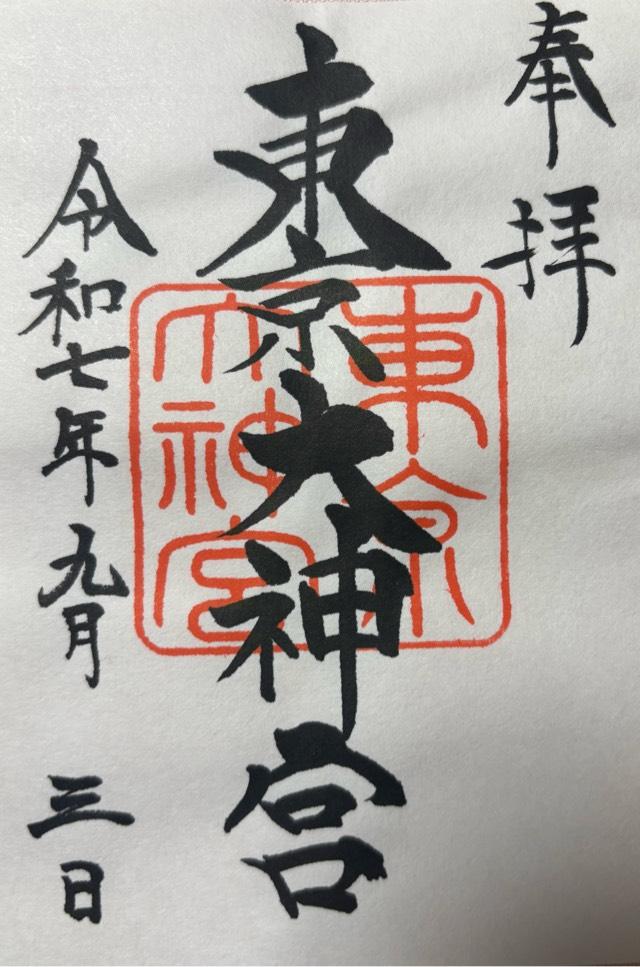 奉拝
東京大神宮
東京大神宮
令和七年九月三日